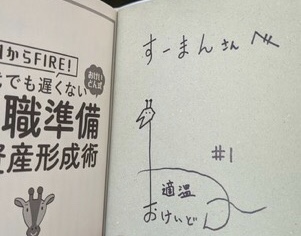 からFIRE!
でも遅くない
おけいどん式
職準備
資産形成術
すーまんさんへ
#1
適温
おけいどん